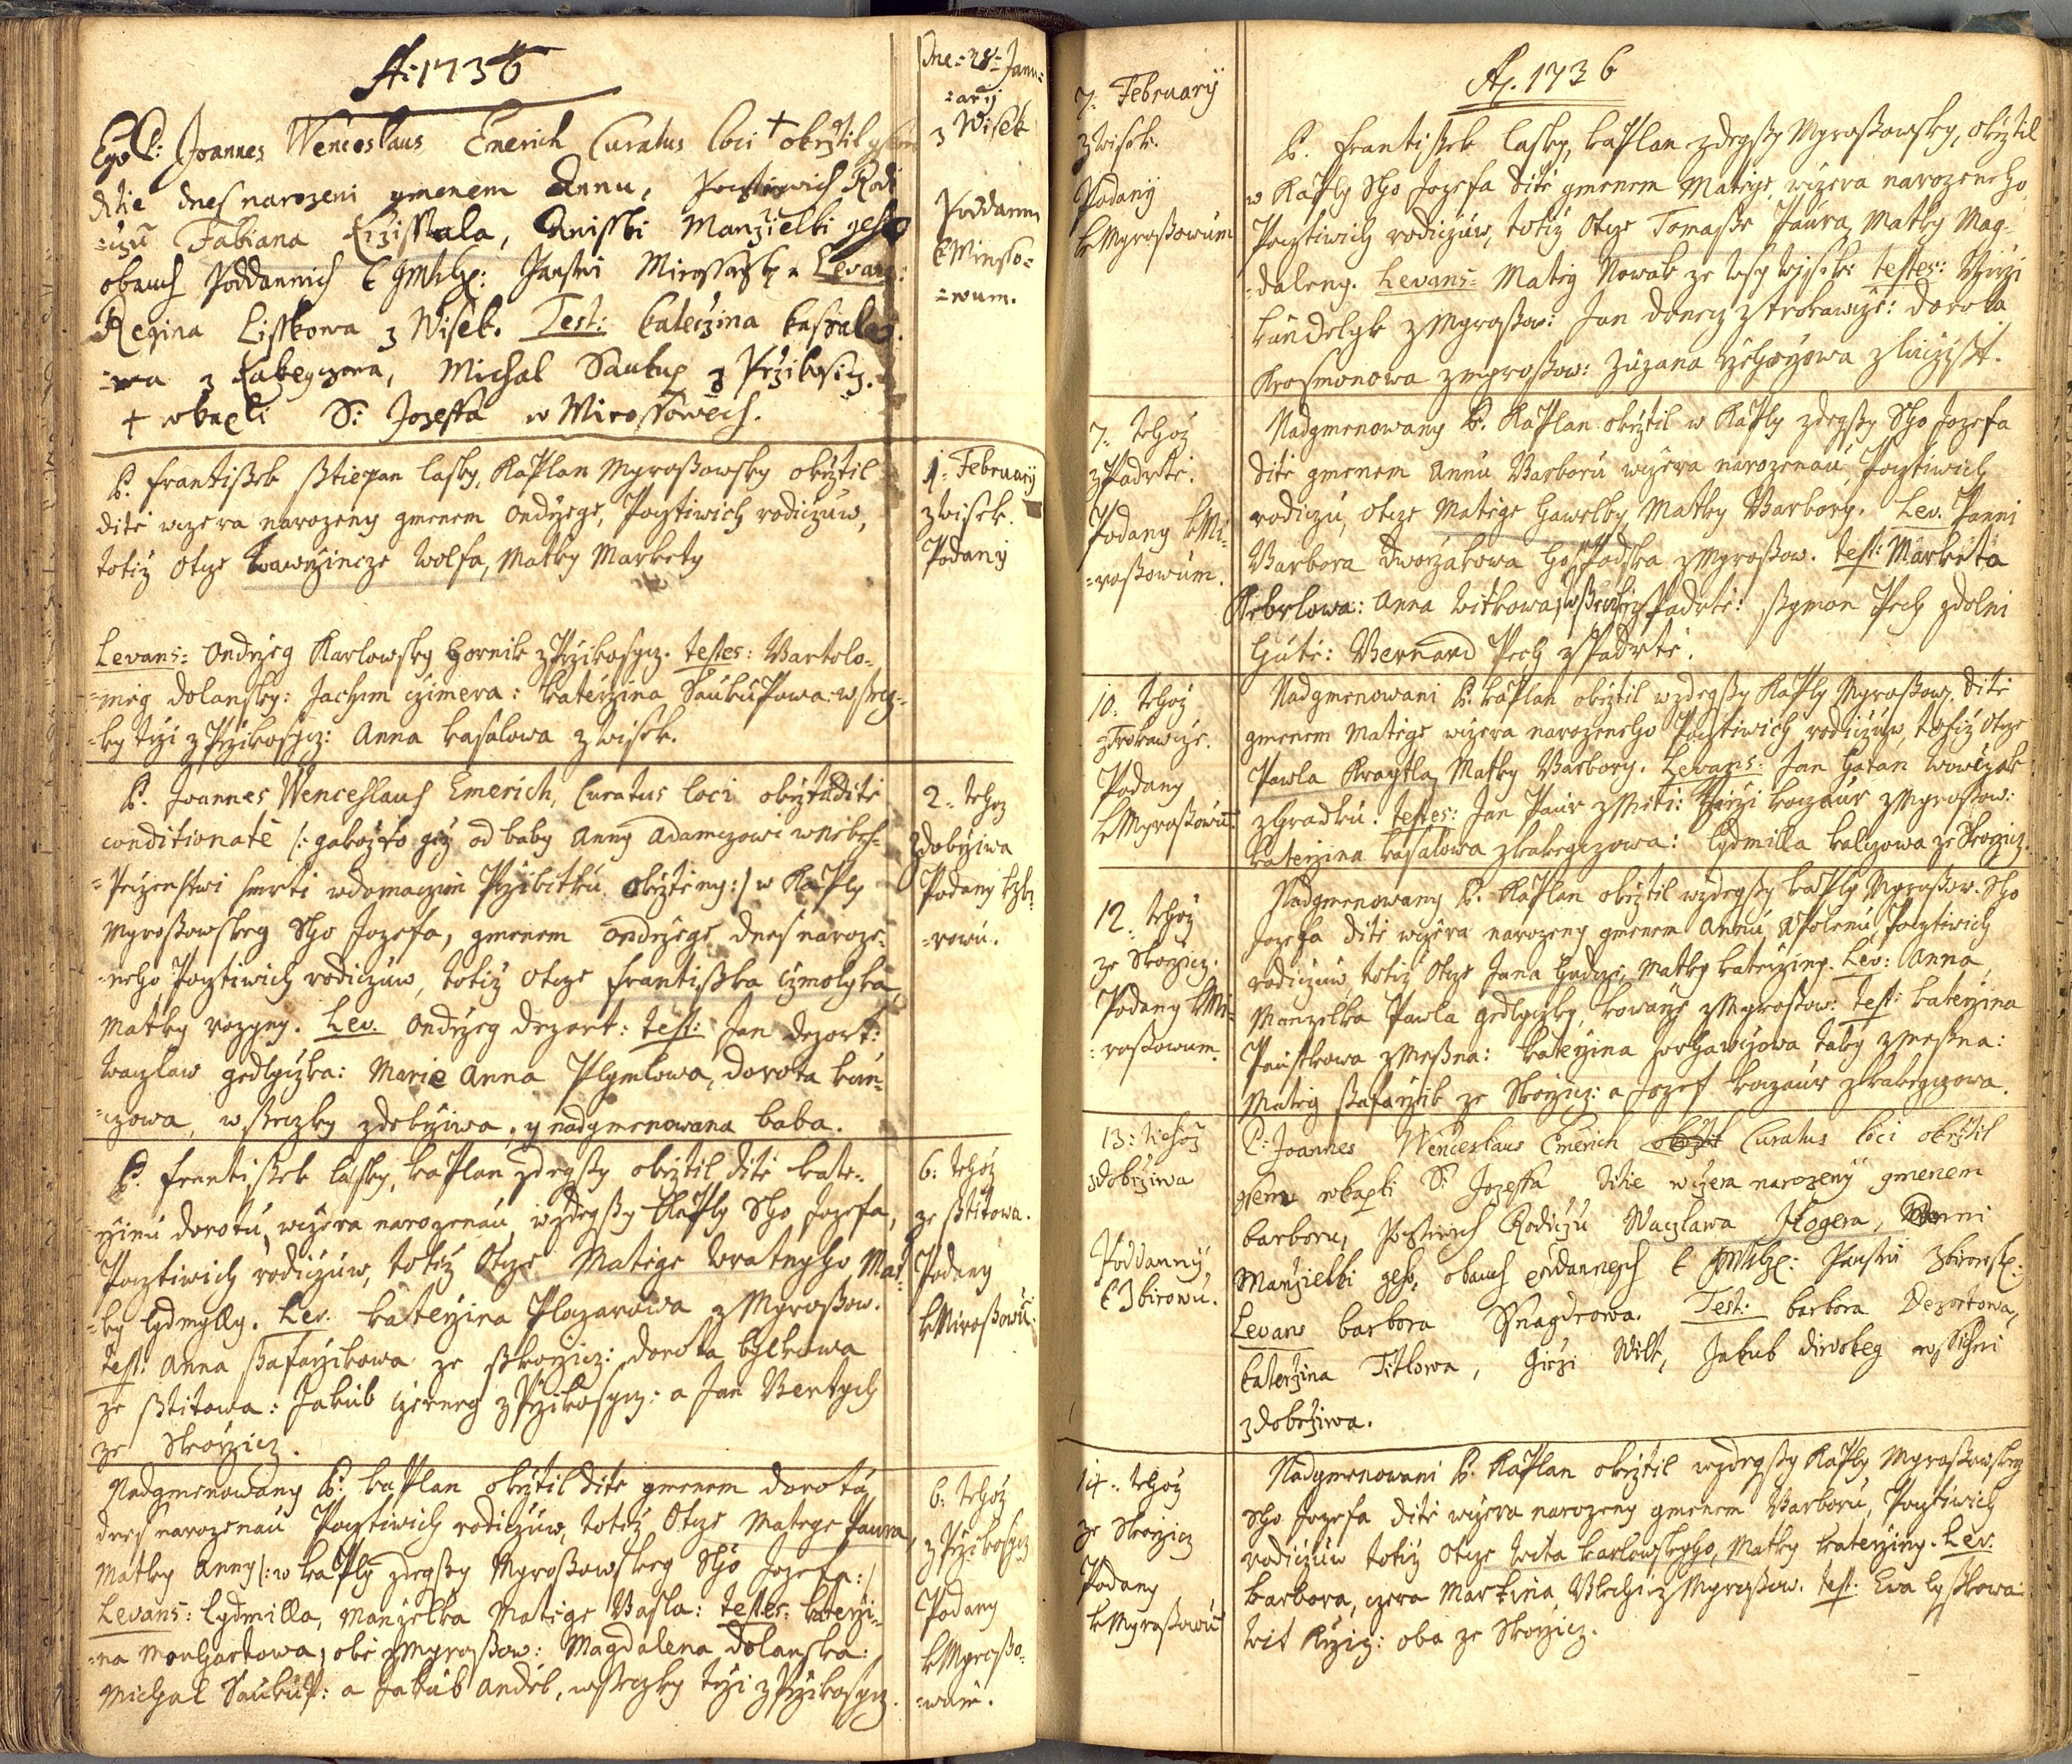 A: 1736
Ego P: Joannes Wenceslaus Emerich Curatus loci + okrżtil gsem
ditie dnes narozeni gmenem Annu, Pocztiwich Rodi
=czu Fabiana Krzissala, Anisski Manżielki geho
obauch Poddannich k Panstwi Mirossowsk. Levans:
Regina Lisskowa z Wisek. Test: katerżina kassalo=
=wa z kakegczowa, Michal Saukup z Prżikosicz.
+ w kapli S: Jozeffa w Mirossowech.
Dne 28 Janu=
=arij
z Wisek
Poddanni
k Mirosso=
=wum.
P. Frantissek Sstiepan lasky, kaplan Myrossowsky okrżtil
dite wczera narozeny gmenem Ondrżege, Pocztiwich rodiczuw,
totiż otcze wawrżincze wolfa, Matky Markety
Levans: Ondrżeg Karlowsky hornik z Prżikosycz. testes: Bartolo=
=meg dolansky: Jachym czimera: katerżina Saukupowa wssecz=
=ky trżi z Prżikosycz: Anna kasalowa z wisek.
1. February
z wisek.
Podany
P. Joannes Wenceslaus Emerich, Curatus loci okrżtil dite
conditionate /: gakożto giż od baby Anny Adamczowi w nebez=
=peczenstwi smrti w domaczim Przibitku okrżteny :/ w kaply
Myrossowskey Sho Jozefa, gmenem Ondrżege dnes naroze=
=neho, Pocztiwich rodiczuw, totiż otcze Frantisska czmolyka,
Matky rozyny. Lev. Ondrżeg dezort: test: Jan dezort:
waczlaw gedlyczka: Marie Anna Plymlowa, dorota kun=
=czowa, wsseczky z dobrżiwa, y nadgmenowana baba.
2. tehoż
z dobrżiwa
Podany k zbi=
=rowu.
P. Frantissek lasky, kaplan zdegssy okrżtil dite kate=
=rżinu dorotu, wczera narozenau w zdegssy kaply Sho Jozefa,
Pocztiwich rodiczuw, totiż otcze Matege wratnyho Mat=
=ky lydmylly. Lev. katerżina Placzarowa z Myrossow.
test: Anna ssafarżikowa ze skorżicz: dorota bylkowa
ze sstitowa: Jakub czerney z Prżikosycz: a Jan Bentych
ze skorżicz.
6. tehoż
ze sstitowa.
Podany
k Mirossowu.
Nadgmenowany P. kaplan okrżtil dite gmenem dorotu,
dnes narozenau Pocztiwich rodiczuw, totiż otcze Matege Paura,
Matky Anny /: w kaply zdegssy Myrossowskey Sho Jozefa :/
Levans: lydmilla, manżelka Matege Basla: testes: katerżi=
=na Monhartowa, obe z Myrossow: Magdalena dolanska:
Michal Saukup: a Jakub Andel, wssczky trżi z Prżikosycz.
6. tehoż
z Prżikosycz
Podany
k Myrosso=
=wum.
A. 1736
7. February
z wisek.
Podany
k Myrossowum
P. Frantissek lasky, kaplan zdegssy Myrossowsky, okrżtil
w kaply Sho Jozefa dite gmenem Matege, wczera narozeneho
Pocztiwich rodiczuw, totiż otcze Tomasse Paura, Matky Mag=
=daleny. Levans: Mateg Nowak ze wsy wisek: testes: Girżi
kundelyk z Myrossow: Jan doney z trokawcze: dorota
Krosmonowa z Myrossow: Zuzana
7. tehoż
z Padrte.
Podany k Mi=
=rossowum.
Nadgmenowany P. kaplan okrżtil w kaply zdegssy Sho Jozefa
dite gmenem Annu Barboru wczera narozenau, Pocztiwich
rodiczu, otcze Matege Hawelky, Matky Barbory. Lev. Panni
Barbora dworżakowa hospodska z Myrossow. test: Marketa
Kebrlowa: Anna witkowa, wsseczky z Padrte: Ssymon Pech z dolni
Hute: Bernard Pech z Padrte.
10. tehoż
z Trokawcze.
Podany
k Myrossowu.
Nadgmenowani P. kaplan okrżtil w zdegssy kaply Myrossow. dite
gmenem Matege wczera narozeneho Pocztiwich rodiczuw, totiż otcze
Pawla Kraytla, Matky Barbory. Levans: Jan Hatan wowcżak
z hradku. testes: Jan Paur z Miti: Girżi koczaur z Myrossow:
katerżina kasalowa z kakegczowa: lydmilla kalczowa ze skorżicz.
12. tehoż
ze skorżicz.
Podany k Mi=
=rossowum.
Nadgmenowany P. kaplan okrżtil w zdegssy kaply Myrossow. Sho
Jozefa dite wczera narozeny gmenem Annu Apolenu Pocztiwich
rodiczuw, totiż otcze Jana Hudcze, Matky katerżiny. Lev: Anna
Manżelka Pawla gedlyczky, kowarże z Myrossow: test: katerżina
Pauskowa z Messna: katerżina Jorhawczowa taky z Messna:
Mateg ssafarżik ze skorżicz: a Jozef koczaur z kakegczowa.
13: tehoż
z dobrżiwa
Poddanny
k Zbirowu.
P: Joannes Wenceslaus Emerich Curatus loci okrżtil
gsem w kapli S: Jozeffa ditie wczera narozeny gmenem
barboru, Pocztiwich Rodiczu Waczlawa Hogera, Anni
Manżielki geho, obauch poddannych k Panstwi Zbirowsk:
Levans barbora Ssnagdrowa. Test: barbora Dezortowa,
katerżina Titlowa, Girżi Wilt, Jakub diwokeg wssichni
z dobrżiwa.
14. tehoż
ze skorżicz
Podany
k Myrossowu
Nadgmenowani P. kaplan okrżtil w zdegssy kaply Myrossowskey
Sho Jozefa dite wczera narozeny gmenem Barboru, Pocztiwich
rodiczuw totiż otcze wita karlowskyho, Matky katerżiny. Lev.
barbora, czera Martina, z Myrossow. test: Eva lysskowa
wit Krziz: oba ze skorżicz.